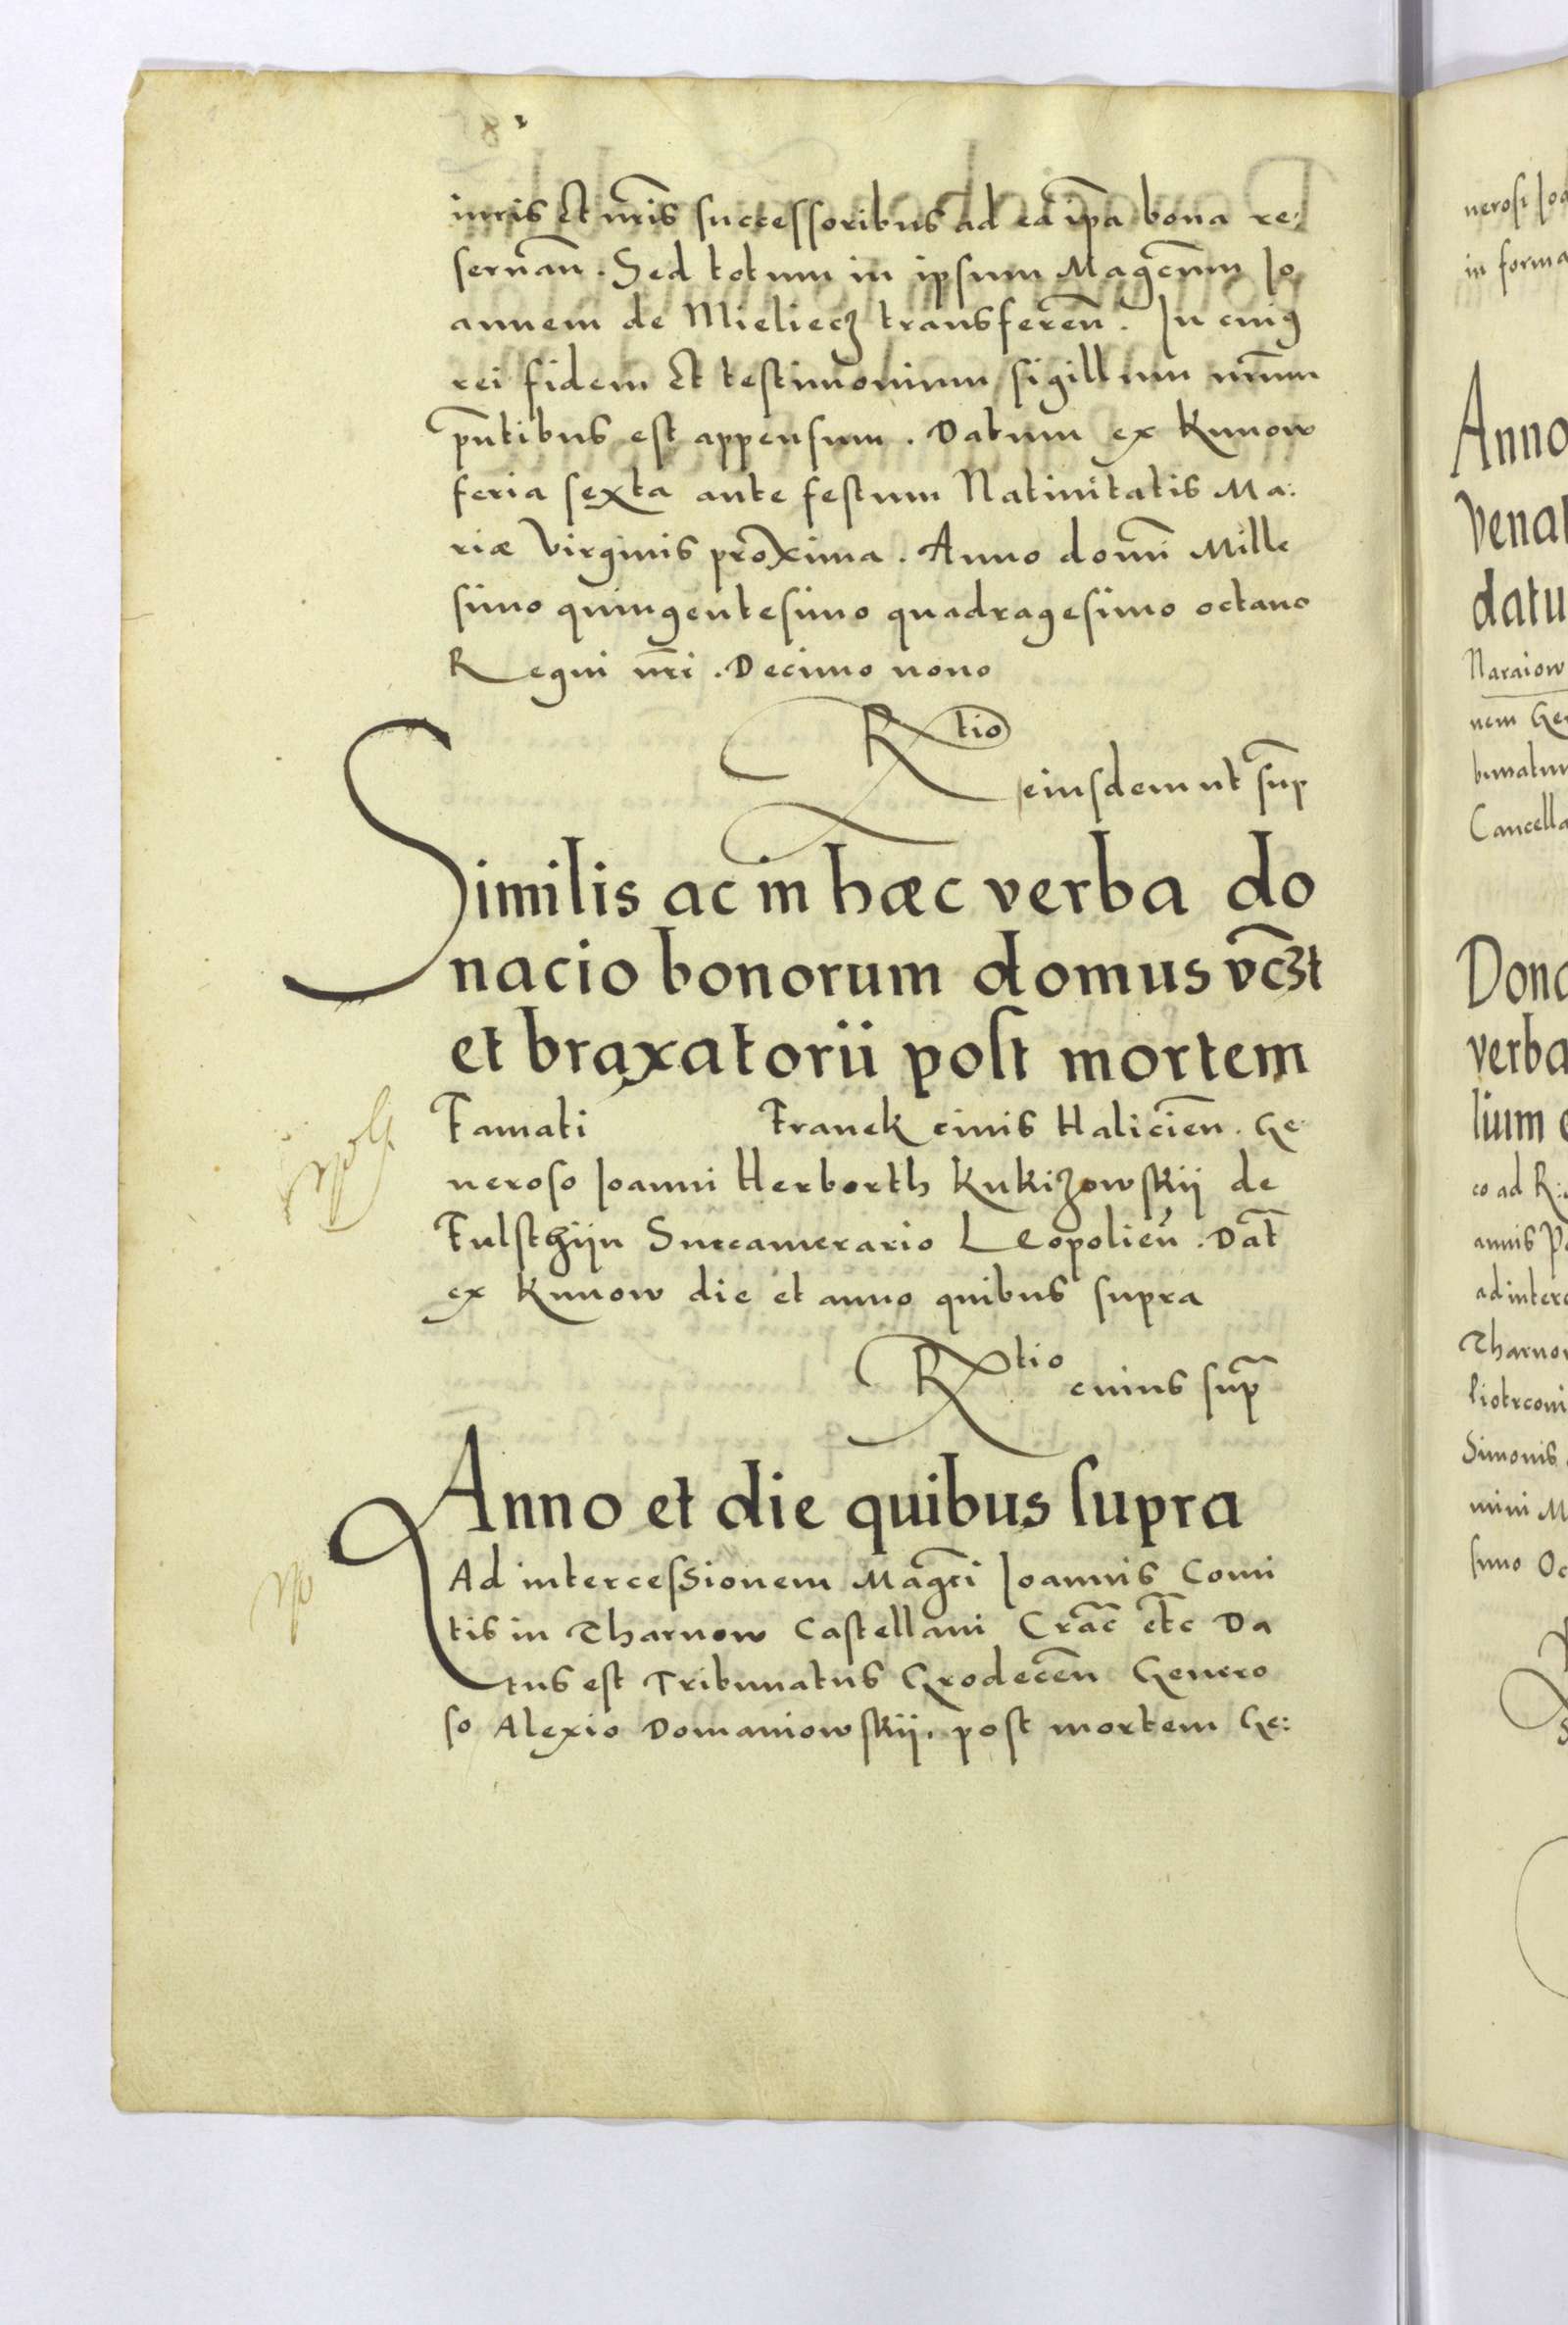 iuris Et nr̄is successoribus ad ea ip̄a bona re:
seruan̄. Sed totum in ipsum Magc̄um Jo
annem de Mieliecz transferen̄. In cuiꝰ
rei fidem Et testimonium sigillum nr̄um
pn̄tibus est appensum. Datum ex Kunow
feria sexta ante festum Natiuitatis Ma:
riæ Virginis proxima. Anno domī Mille
simo quingentesimo quadragesimo octauo
Regni nr̄i. Decimo nono
Rtio
eiusdem ut sup̄
Similis ac in hæc verba do
nacio bonorum domus vc̄zt
et braxatorii post mortem
Famati Franek ciuis Halicien̄. Ge
neroso Joanni Herborth Kukizowskij de
Fulsthijn Succamerario Leopolien̄. Dat̄
ex Kunow die et anno quibus supra
Rtio
cuius sup̄
Anno et die quibus supra
Ad intercessionem Magc̄i Joannis Comi
tis in Tharnow Castellani Crac̄ etc̄ Da
tus est Tribunatus Grodecen̄ Genero
so Alexio Domaniowskij. post mortem Ge:
nerosi Joa
in forma
Anno
vena
datu
Naraiow
nem Ge
bunatum
Cancella
Dona
verba
lium
co ad R:
annis P
ad interc
Tharnow
Piotrconi
Simonis
mini M
simo Oc